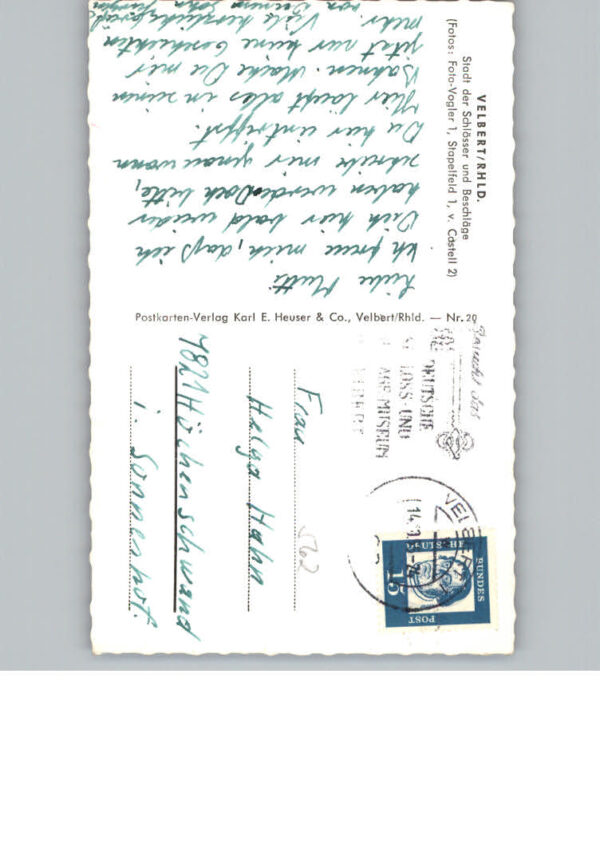 VELBERT/RHLD.
Stadt der Schlösser und Beschläge
(Fotos: Foto-Vogler 1, Stapelfeld 1, v. Castell 2)
Liebe Mutti
Ich freue mich, daß ich
Dich hier bald wieder
haben werde. Doch bitte,
schreibe mir genau wann
Du hier eintriffst.
Hier läuft alles in seinen
Bahnen. Mache Du mir
jetzt nur keine Geschichten
mehr. Viele herzliche Grüße
von Deinem Sohn
Postkarten-Verlag Karl E. Heuser & Co., Velbert/Rhld. — Nr. 20
Besucht das
DEUTSCHE
SCHLOSS- UND
MUSEUM
VELBERT
VELBERT
14.
DEUTSCHE BUNDESPOST
15
LUTHER
Frau
Helga Hahn
7821 Höchenschwand
i. Sonnenhof.